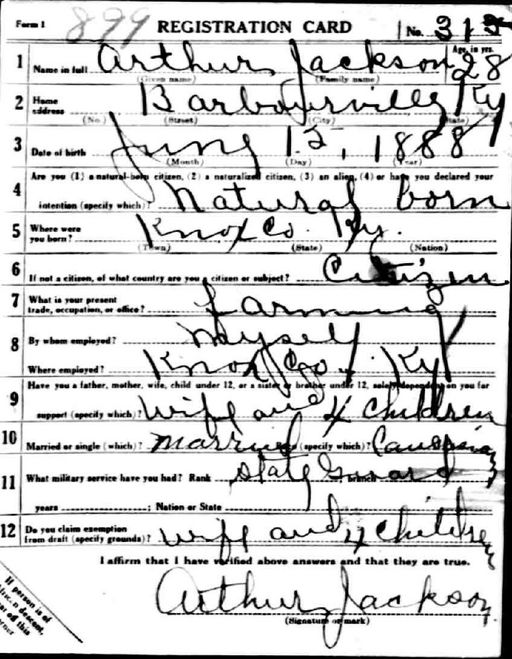 Form 1 899 REGISTRATION CARD No. 315
1 Name in full Arthur Jackson Age, in yrs. 28
(Given name) (Family name)
2 Home address Barbourville Ky
(No.) (Street) (City) (State)
3 Date of birth June 12, 1888
(Month) (Day) (Year)
4 Are you (1) a natural-born citizen, (2) a naturalized citizen, (3) an alien, (4) or have you declared your
intention (specify which)? Natural born
5 Where were you born? Knox Co. Ky.
(Town) (State) (Nation)
6 If not a citizen, of what country are you a citizen or subject? Citizen
7 What is your present trade, occupation, or office? farming
8 By whom employed? Myself
Where employed? Knox Co. Ky
9 Have you a father, mother, wife, child under 12, or a sister or brother under 12, solely dependent on you for
support (specify which)? Wife and 4 children
10 Married or single (which)? Married (specify which)? Caucasian
11 What military service have you had? Rank State Guard branch
years ; Nation or State
12 Do you claim exemption from draft (specify grounds)? Wife and 4 children
I affirm that I have verified above answers and that they are true.
Arthur Jackson
(Signature or mark)
If person is of
descent,
of this